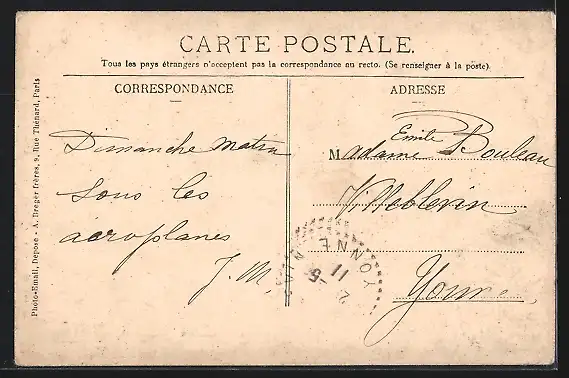 CARTE POSTALE.
Tous les pays étrangers n'acceptent pas la correspondance au recto. (Se renseigner à la poste).
CORRESPONDANCE
Dimanche matin
sous les
aéroplanes
J. M.
ADRESSE
Madame Emile Bouleau
Villeblevin
Yonne
YONNE
Photo-Email, Déposé - A. Breger frères, 9, Rue Thénard, Paris